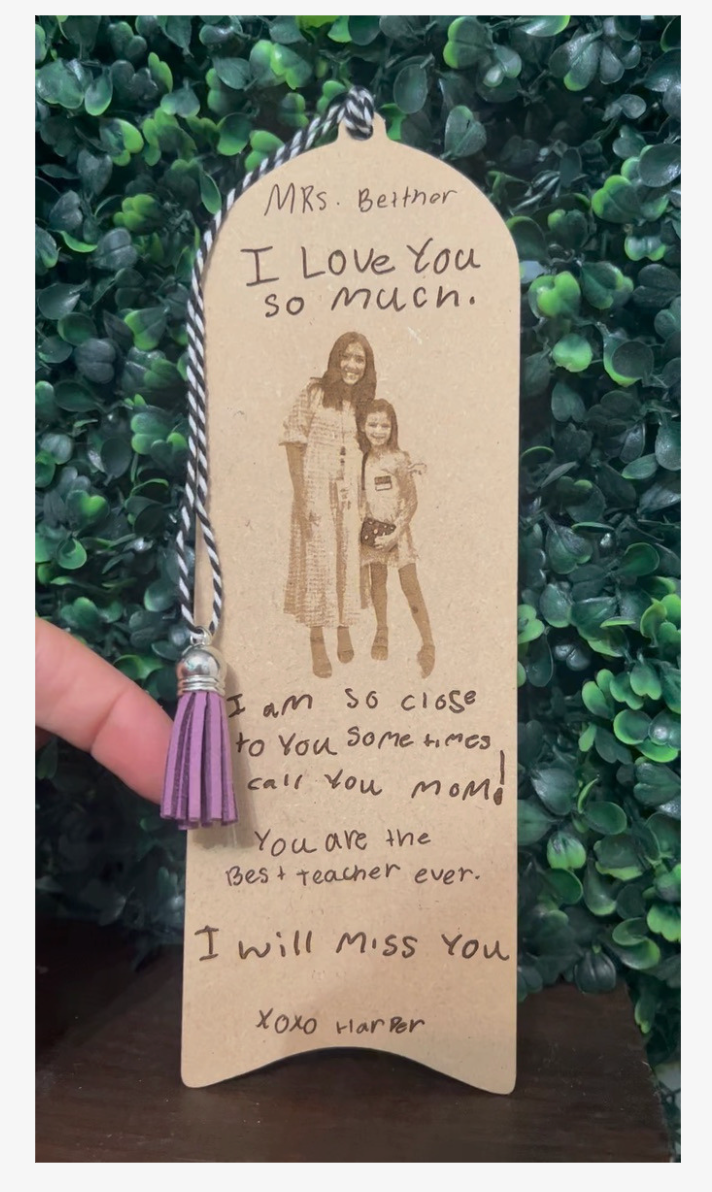 MRs. Beither
I Love You
so much.
I am so close
to You some times
call You mom!
You are the
Best teacher ever.
I will miss You
xoxo HarPer